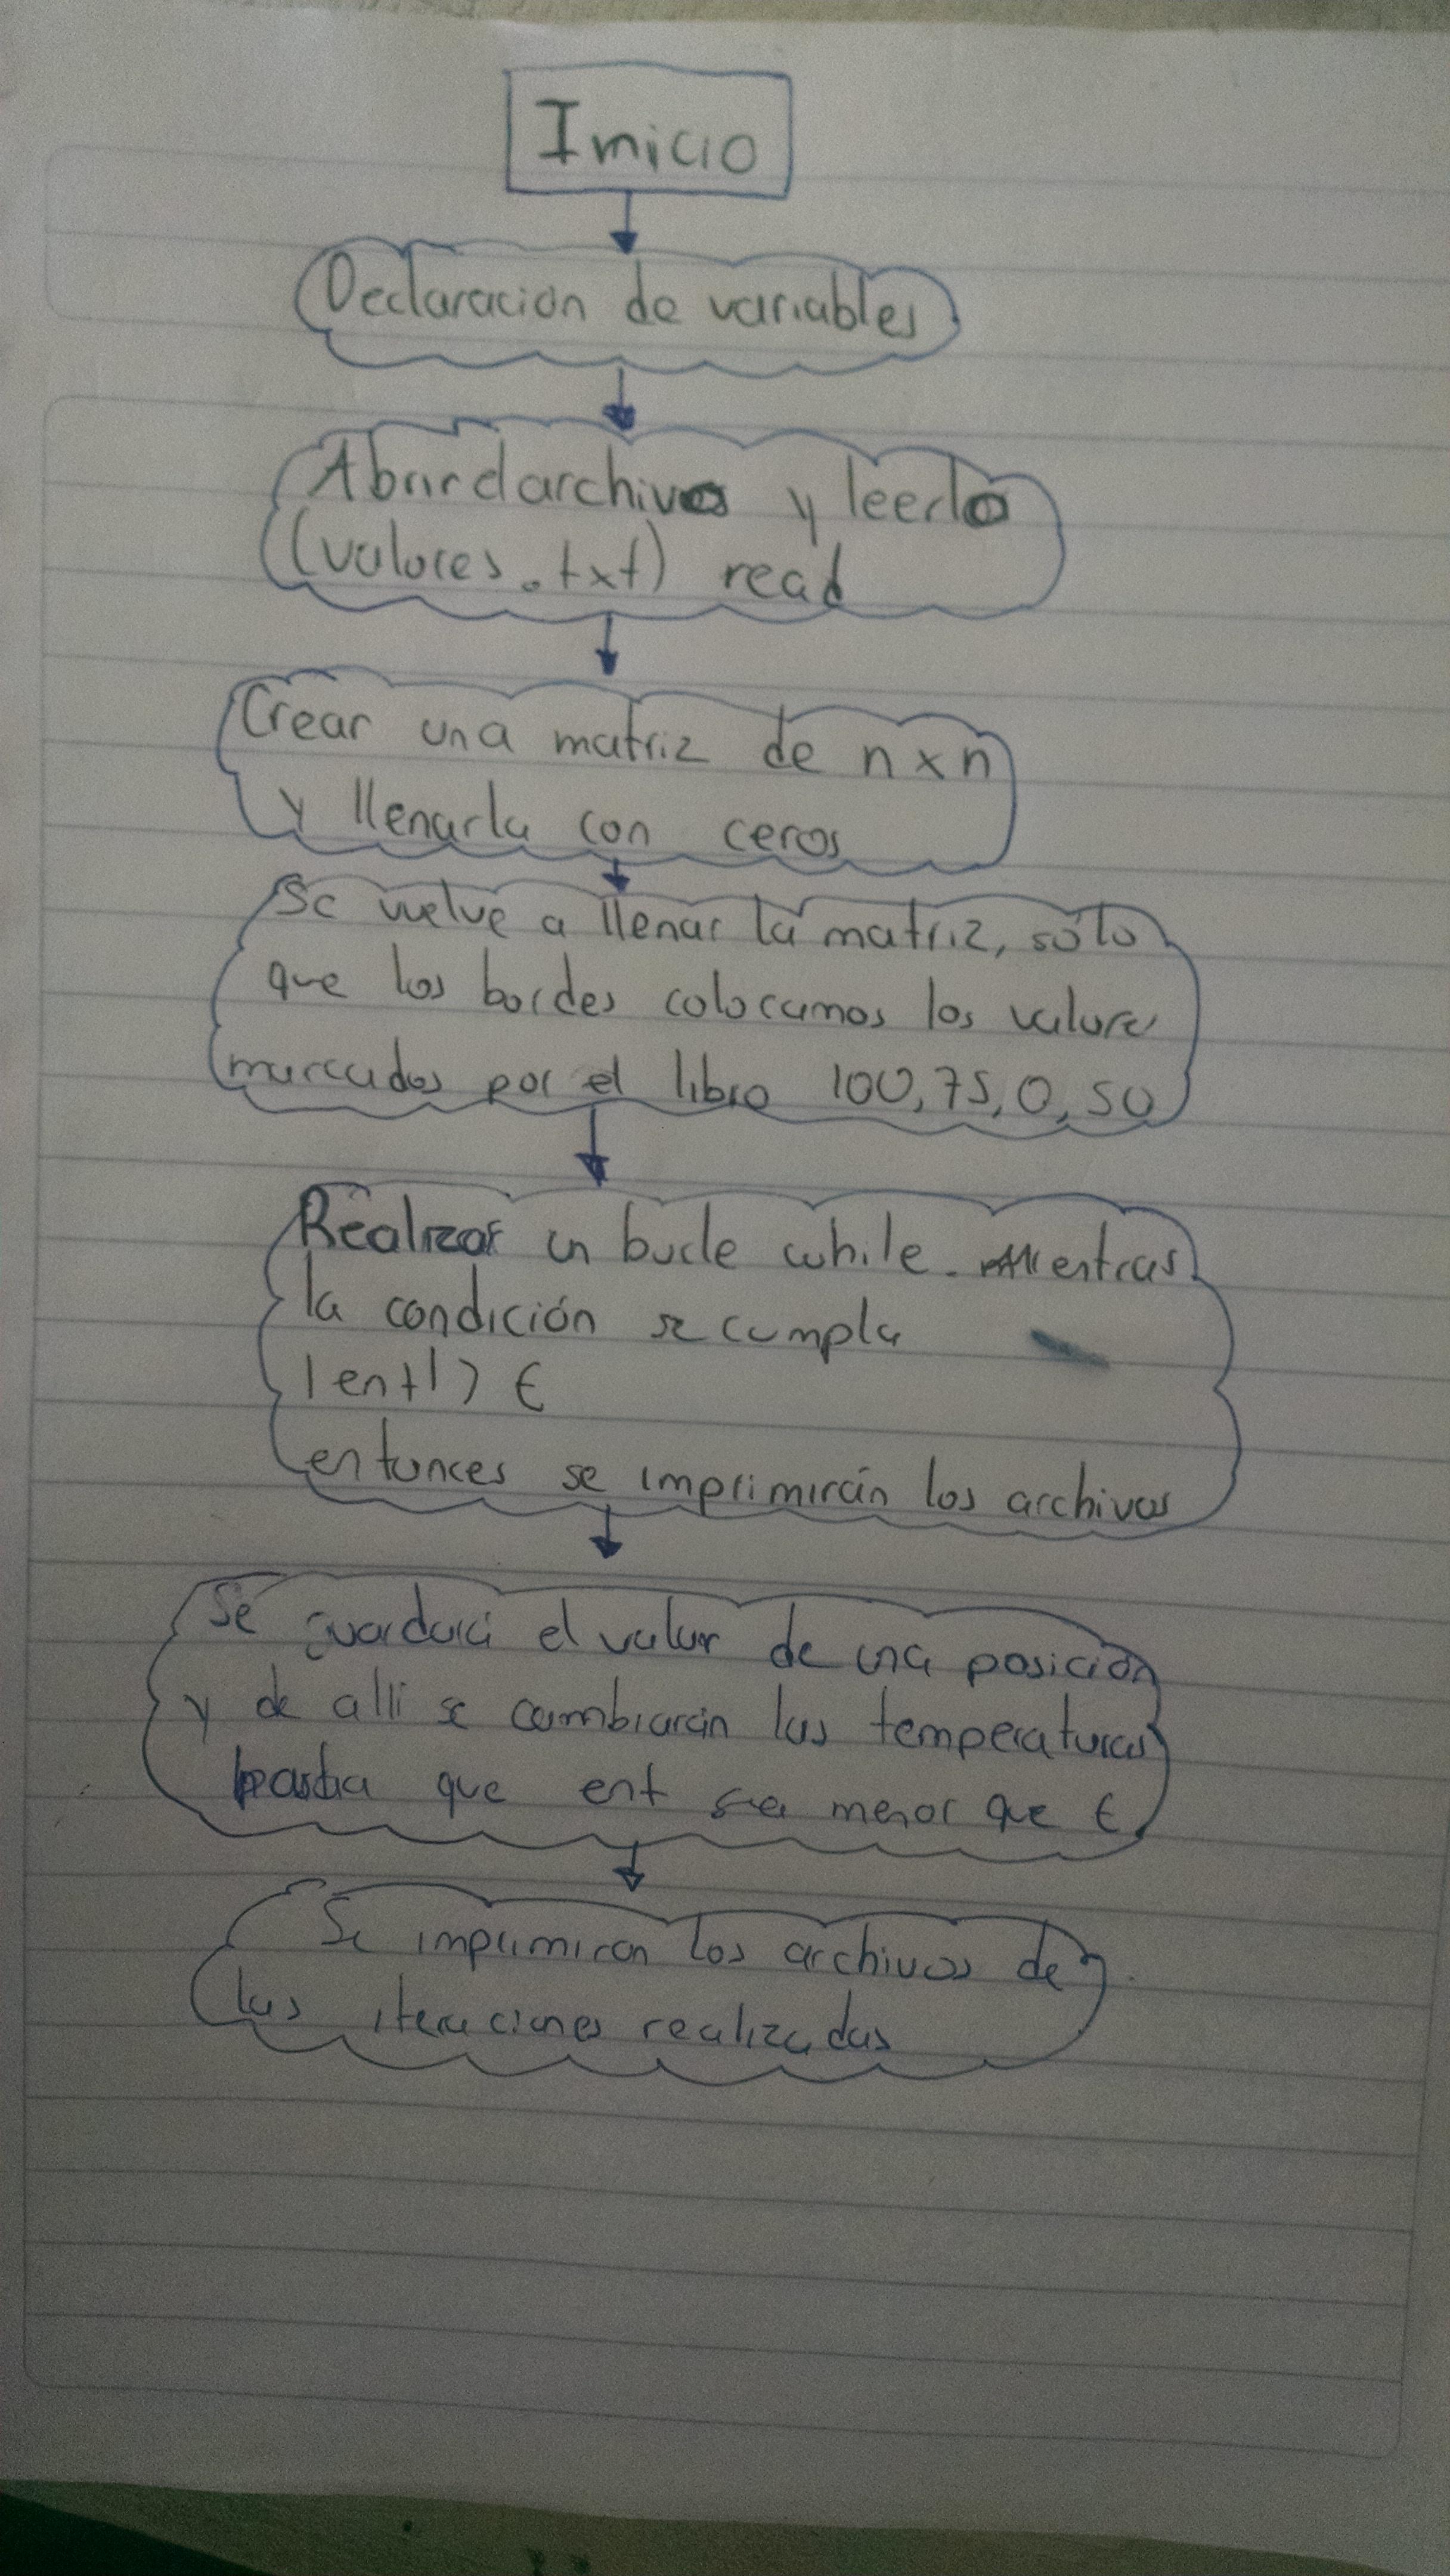 Inicio
Declaración de variables
Abrir el archivo y leerlo
(valores.txt) read
Crear una matriz de n x n
y llenarla con ceros
Se vuelve a llenar la matriz, sólo
que los bordes colocamos los valores
marcados por el libro 100, 75, 0, 50
Realizar un bucle while. Mientras
la condición se cumpla
|ent|> ϵ
entonces se imprimirán los archivos
Se guardará el valor de una posición
y de allí se cambiarán las temperaturas
hasta que ent sea menor que ϵ
Se imprimiran los archivos de
las iteraciones realizadas